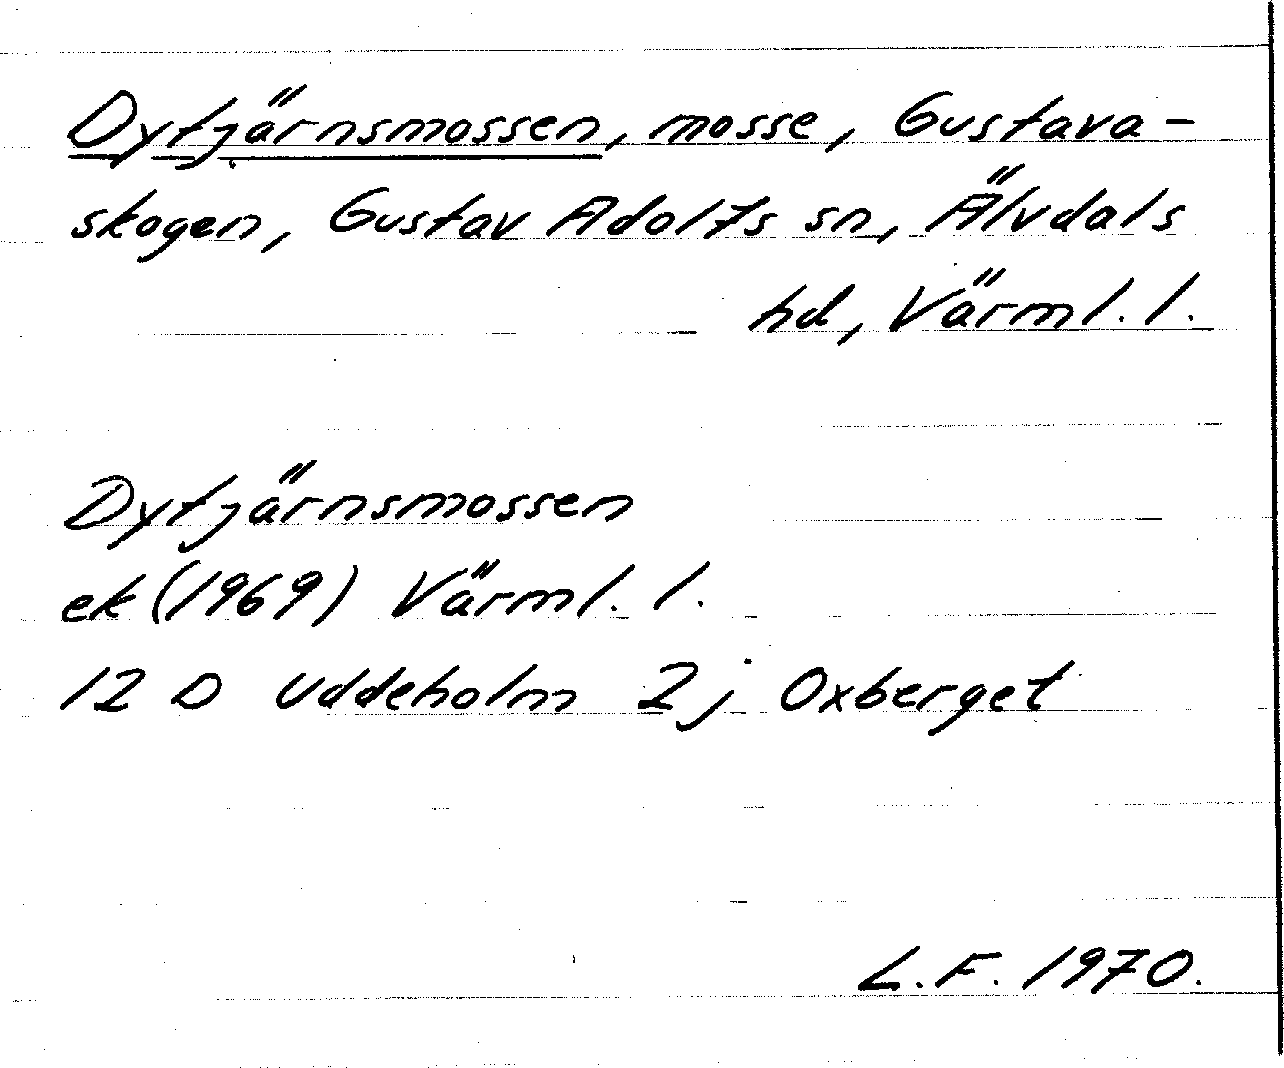 Dytjärnsmossen, mosse, Gustava-
skogen, Gustav Adolfs sn, Älvdals
hd, Värml. l.
Dytjärnsmossen
ek (1969) Värml. l.
12 D Uddeholm 2j Oxberget
L.F. 1970.